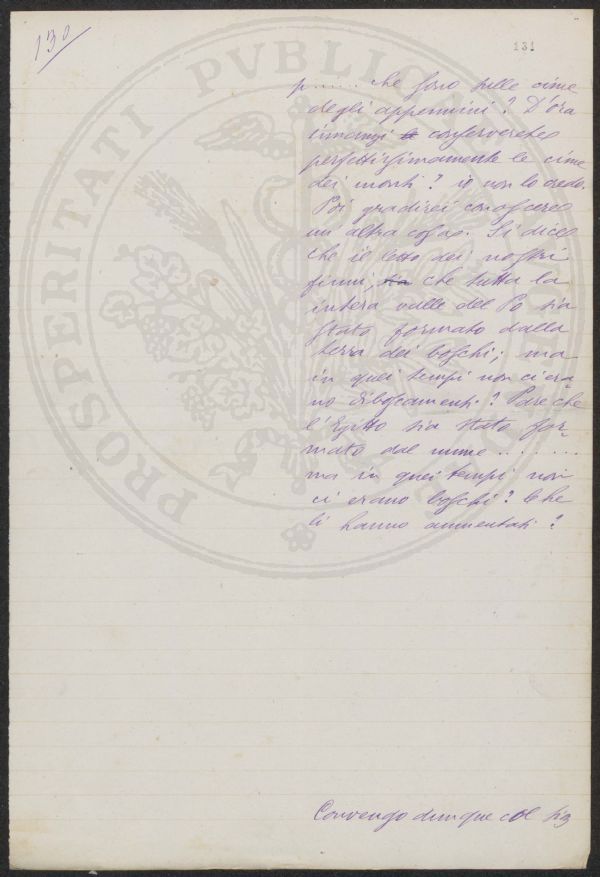 130
131
p...... che sono sulle cime
degli appennini? D'ora
innanzi conserverete
perfettissimamente le cime
dei monti? io non lo credo.
Poi gradirei conoscere
un'altra cosa. Si dice
che il letto dei nostri
fiumi, che tutta la
intera valle del Po sia
stato formato dalla
terra dei boschi; ma
in quei tempi non ci era-
no disboscamenti? Pare che
l'Egitto sia stato for-
mato dal nume .......
ma in quei tempi non
ci erano boschi? Che
li hanno aumentati?
Convengo dunque col sig
PROSPERITATI PVBLICAE